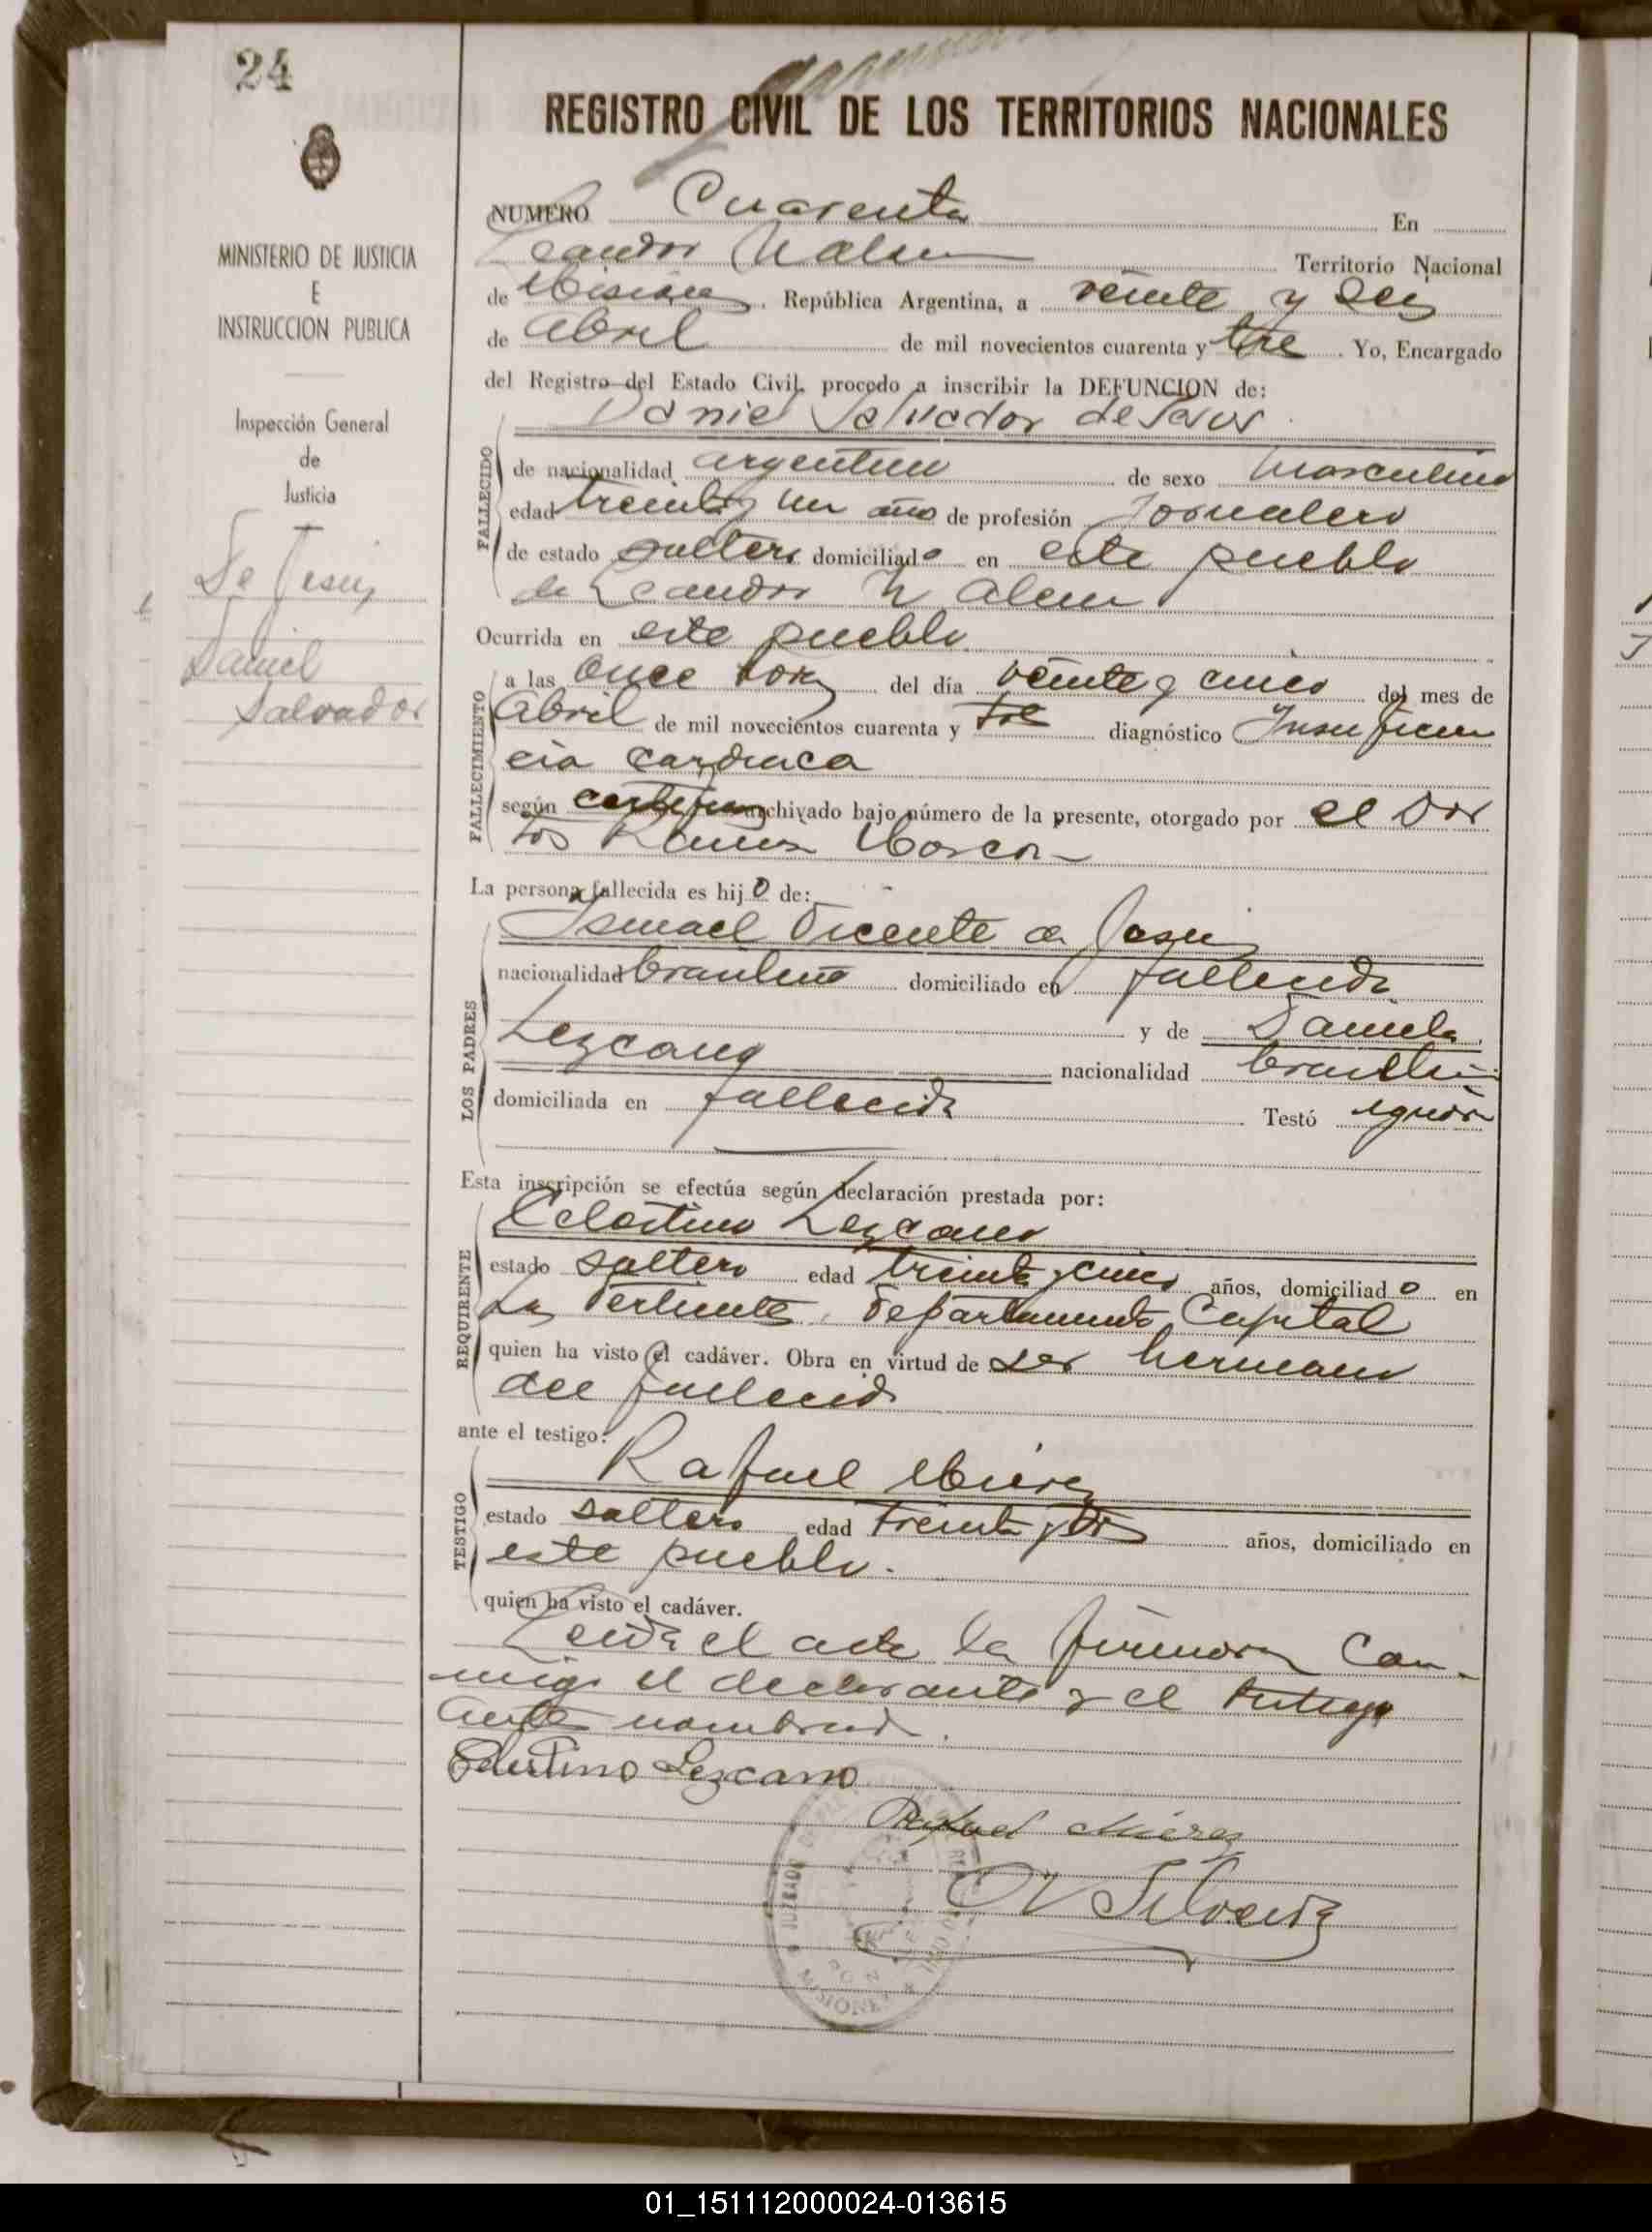 24
REGISTRO CIVIL DE LOS TERRITORIOS NACIONALES
MINISTERIO DE JUSTICIA
E
INSTRUCCION PUBLICA
Inspección General
de
Justicia
De Jesus
Daniel
Salvador
NUMERO Cuarenta En
Leandro N Alem Territorio Nacional
de Misiones, República Argentina, a veinte y seis
de Abril de mil novecientos cuarenta y tre . Yo, Encargado
del Registro del Estado Civil, procedo a inscribir la DEFUNCION de:
Daniel Salvador de Jesus
FALLECIDO
de nacionalidad argentino de sexo masculino
edad treinta y un año de profesión Jornalero
de estado soltero domiciliado en este pueblo
de Leandro N Alem
Ocurrida en este pueblo
FALLECIMIENTO
a las once horas del día veinte y cinco del mes de
Abril de mil novecientos cuarenta y tre diagnóstico Insuficien
cia cardiaca
según archivado bajo número de la presente, otorgado por el Doc
tor Ramon
La persona fallecida es hijo de:
LOS PADRES
Ismael Vicente de Jesus
nacionalidad brasileño domiciliado en fallecido
y de Daniela
Lezcano nacionalidad brasileña
domiciliada en fallecida Testó ignora
Esta inscripción se efectúa según declaración prestada por:
REQUIRENTE
Celestino Lezcano
estado soltero edad treinta y cinco años, domiciliado en
La Vertiente, Departamento Capital
quien ha visto el cadáver. Obra en virtud de ser hermano
del fallecido
ante el testigo:
TESTIGO
Rafael Mierez
estado soltero edad treinta y años, domiciliado en
este pueblo.
quien ha visto el cadáver.
Leida el acta la firmaron con
migo el declarante y el testigo
antes nombrado
Celestino Lezcano
Rafael Mierez
JUZGADO DE
MISIONES
01_151112000024-013615